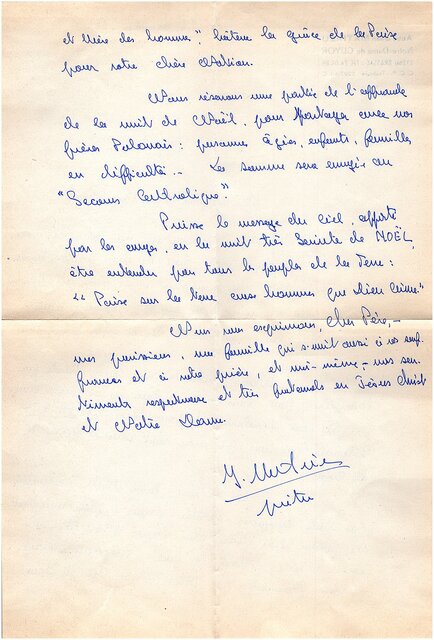 et Mère des hommes", hâtera la grâce de la Paix
pour votre chère Nation.
Nous réservons une partie de l'offrande
de la nuit de Noël, pour partager avec nos
frères Polonais : personnes âgées, enfants, familles
en difficultés... La somme sera envoyée au
"Secours Catholique".
Puisse le message du Ciel, apporté
par les anges, en la nuit très Sainte de NOËL,
être entendu par tous les peuples de la Terre :
"Paix sur la terre aux hommes que Dieu aime."
Nous vous exprimons, Cher Père, -
mes paroissiens, une famille qui s'unit aussi à vos souf-
frances et à votre prière, et moi-même, - nos sen-
timents respectueux et très fraternels en Jésus Christ
et Notre Dame.
prêtre